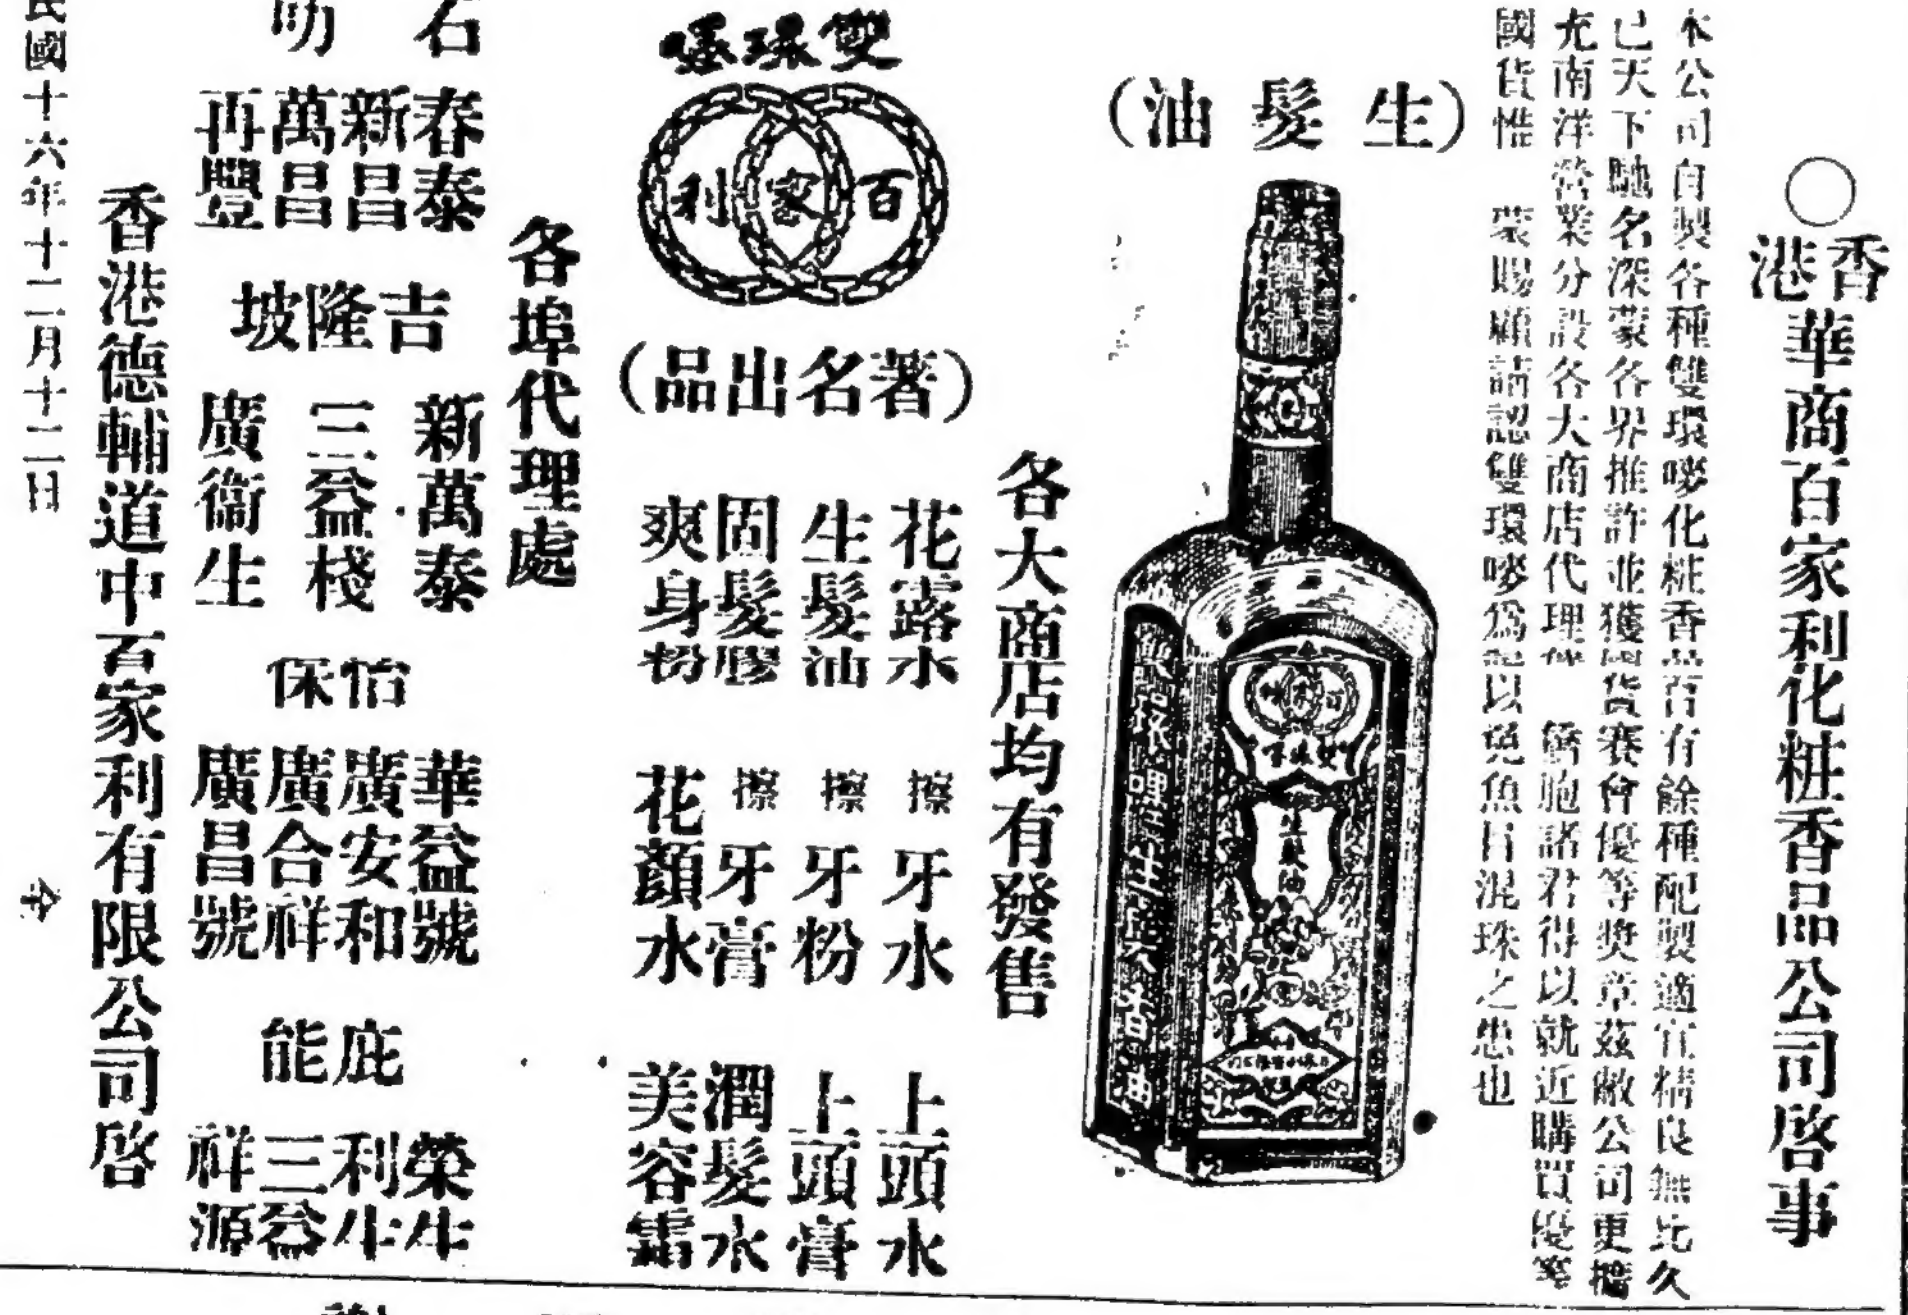 ○香港華商百家利化粧香品公司啓事
本公司自製各種雙環嘜化粧香品百有餘種配製適宜精良無比久
已天下馳名深蒙各界推許並獲國貨賽會優等奬章茲敝公司更擴
充南洋營業分設各大商店代理俾 僑胞諸君得以就近購買優等
國貨惟 蒙賜顧請認雙環嘜爲記以免魚目混珠之患也
(生髮油)
百家利
雙環嘜
生髮油
各大商店均有發售
雙環嘜
百家利
(著名出品)
花露水 擦牙水 上頭水
生髮油 擦牙粉 上頭膏
固髮膠 擦牙膏 潤髮水
爽身粉 花顏水 美容霜
各埠代理處
石叻
春泰
新昌
萬昌
再豐
吉隆坡
新萬泰
三益棧
廣衞生
怡保
華益號
廣安和
廣合祥
廣昌號
庇能
榮生
利生
三益
祥源
香港德輔道中百家利有限公司啓
民國十六年十二月十二日
全